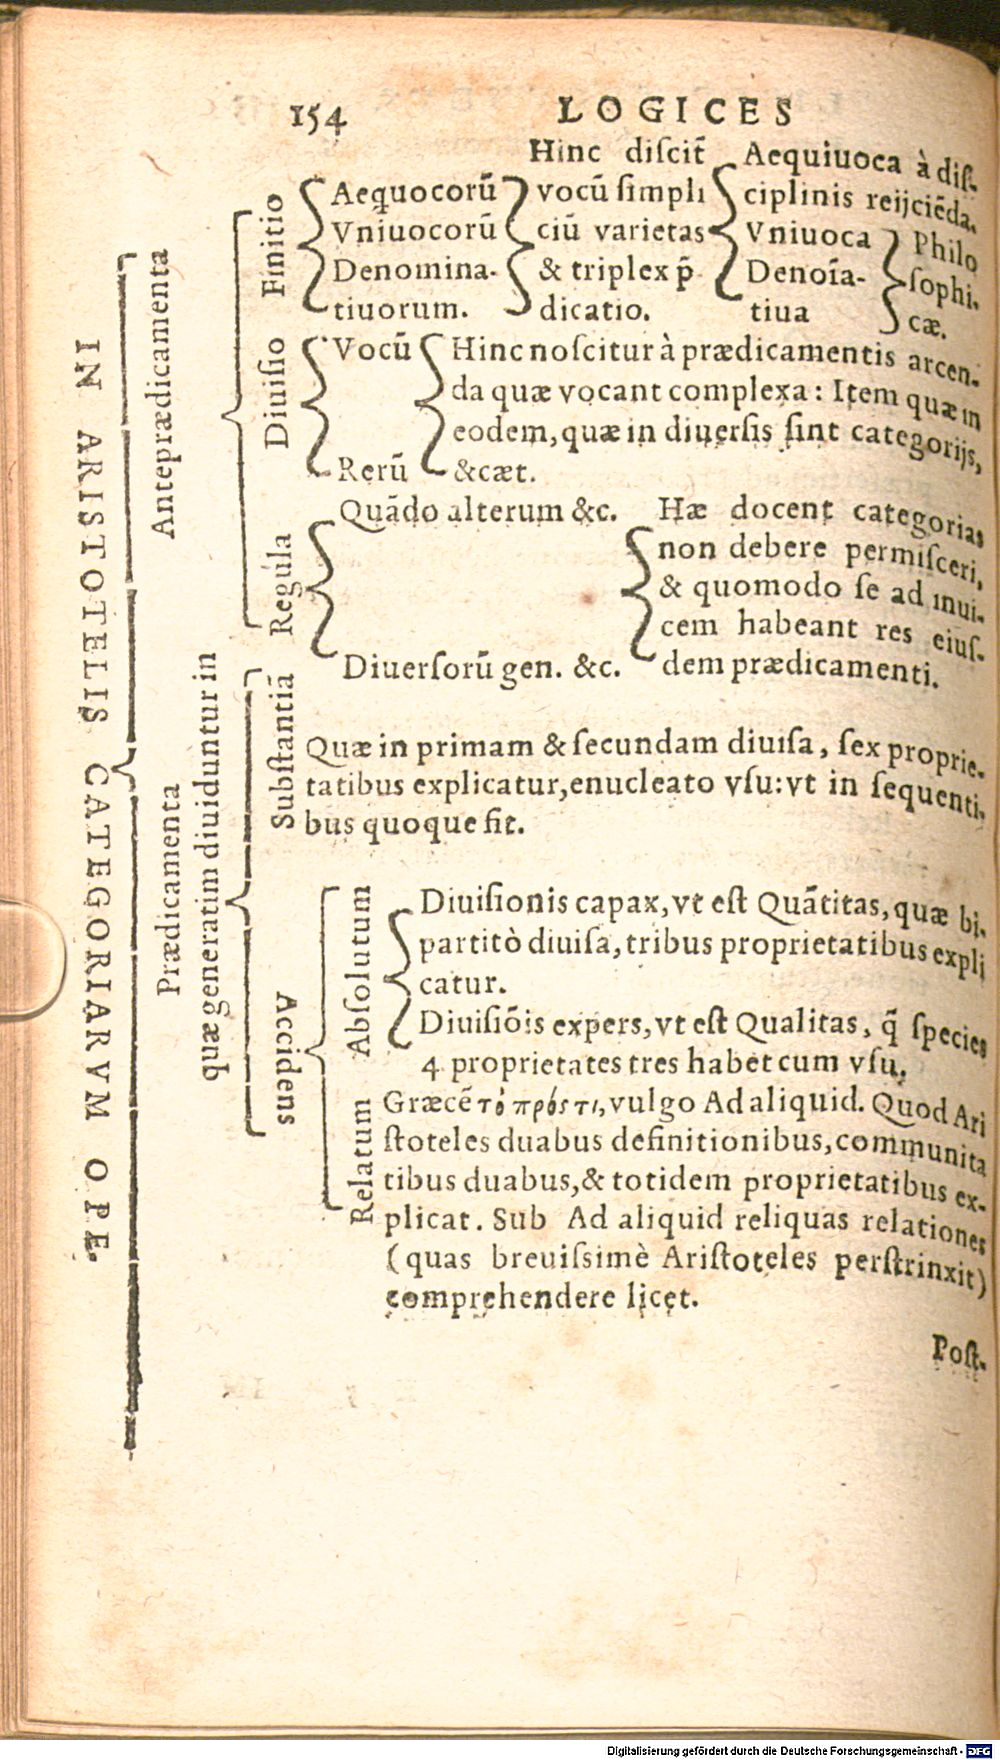 154 LOGICES
IN ARISTOTELIS CATEGORIARVM OPE.
Anteprædicamenta
Finitio
Aequocorũ
Vniuocorũ
Denomina-
tiuorum.
Hinc diſcit̃
vocũ ſimpli
ciũ varietas
& triplex p̃
dicatio.
Aequiuoca à diſ-
ciplinis reijciẽda.
Vniuoca
Denoĩa-
tiua
Philo
ſophi-
cæ.
Diuiſio
Vocũ
Rerũ
Hinc noſcitur à prædicamentis arcen-
da quæ vocant complexa: Item quæ in
eodem, quæ in diuerſis ſint categorijs,
&cæt.
Regula
Quãdo alterum &c.
Diuerſorũ gen. &c.
Hæ docent categorias
non debere permiſceri,
& quomodo ſe ad inui-
cem habeant res eiuſ-
dem prædicamenti.
Prædicamenta
quæ generatim diuiduntur in
Subſtantiã
Quæ in primam & ſecundam diuiſa, ſex proprie-
tatibus explicatur, enucleato vſu: vt in ſequenti-
bus quoque fit.
Accidens
Abſolutum
Diuiſionis capax, vt eſt Quãtitas, quæ bi-
partitò diuiſa, tribus proprietatibus expli
catur.
Diuiſiõis expers, vt eſt Qualitas, q̃ ſpecies
4 proprietates tres habet cum vſu.
Relatum
Græcẽ τὸ πρός τι, vulgo Ad aliquid. Quod Ari
ſtoteles duabus definitionibus, communita
tibus duabus, & totidem proprietatibus ex-
plicat. Sub Ad aliquid reliquas relationes
(quas breuiſsimè Ariſtoteles perſtrinxit)
comprehendere licet.
Poſt-
Digitalisierung gefördert durch die Deutsche Forschungsgemeinschaft - DFG